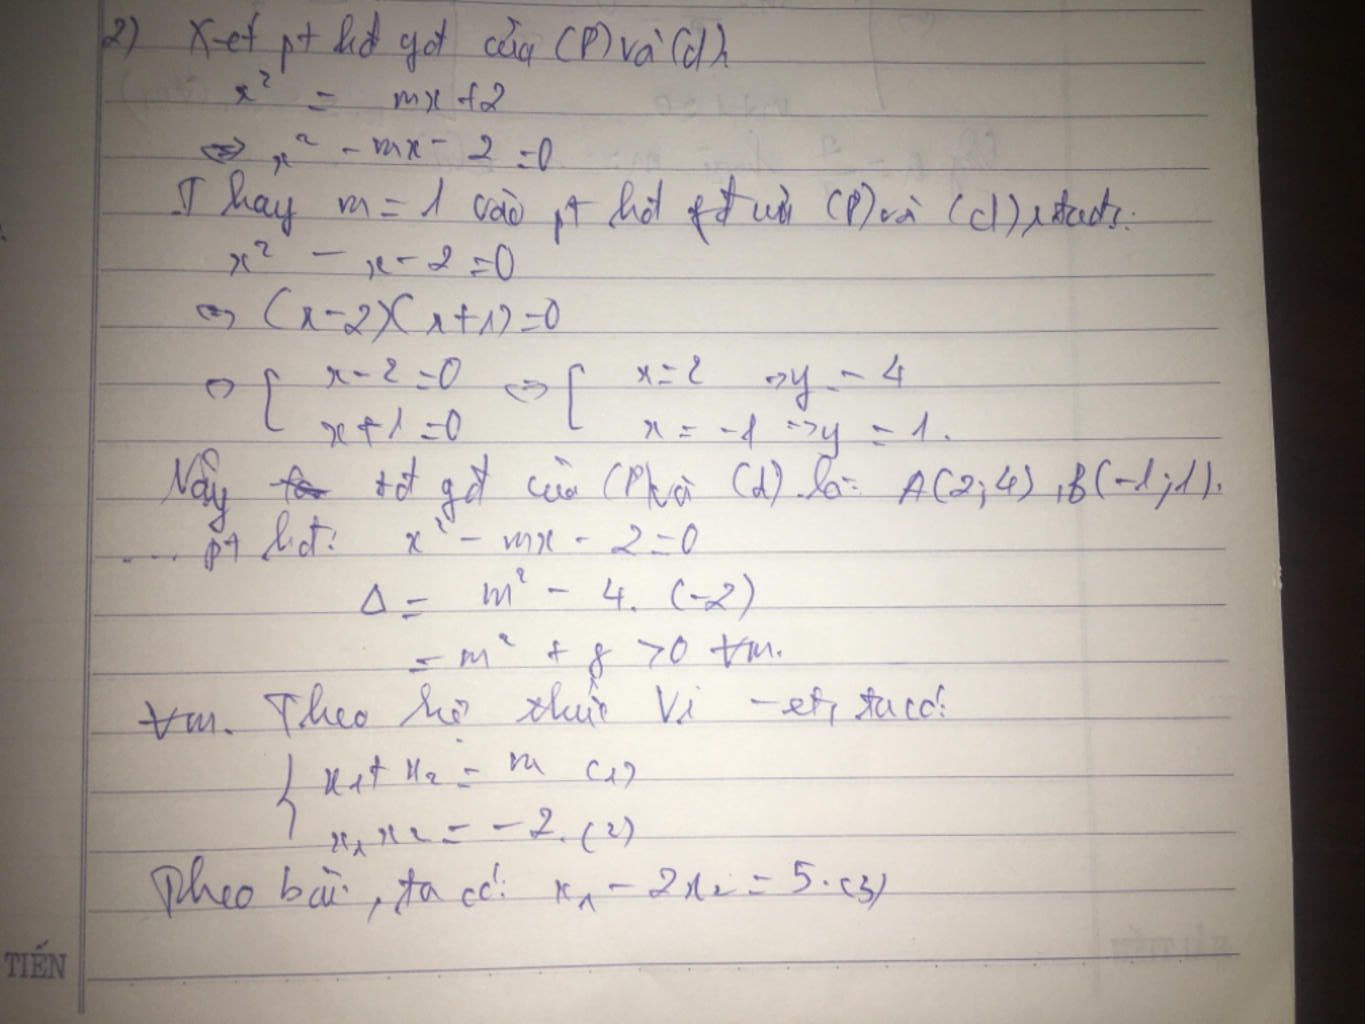 2) Xét pt hđ gđ của (P) và (d).
x² = mx + 2
⇔ x² - mx - 2 = 0
Thay m = 1 vào pt hđ gđ của (P) và (d), ta đc:
x² - x - 2 = 0
⇔ (x-2)(x+1) = 0
⇔ [ x - 2 = 0 ⇔ [ x = 2 ⇒ y = 4
x + 1 = 0 x = -1 ⇒ y = 1.
Vậy tđ gđ của (P) và (d) là: A(2;4), B(-1;1).
... pt hđ: x² - mx - 2 = 0
Δ = m² - 4. (-2)
= m² + 8 > 0 ∀m.
∀m. Theo hệ thức Vi-et, ta có:
{ x₁ + x₂ = m (1)
x₁x₂ = -2. (2)
Theo bài, ta có: x₁ - 2x₂ = 5. (3)
TIẾN